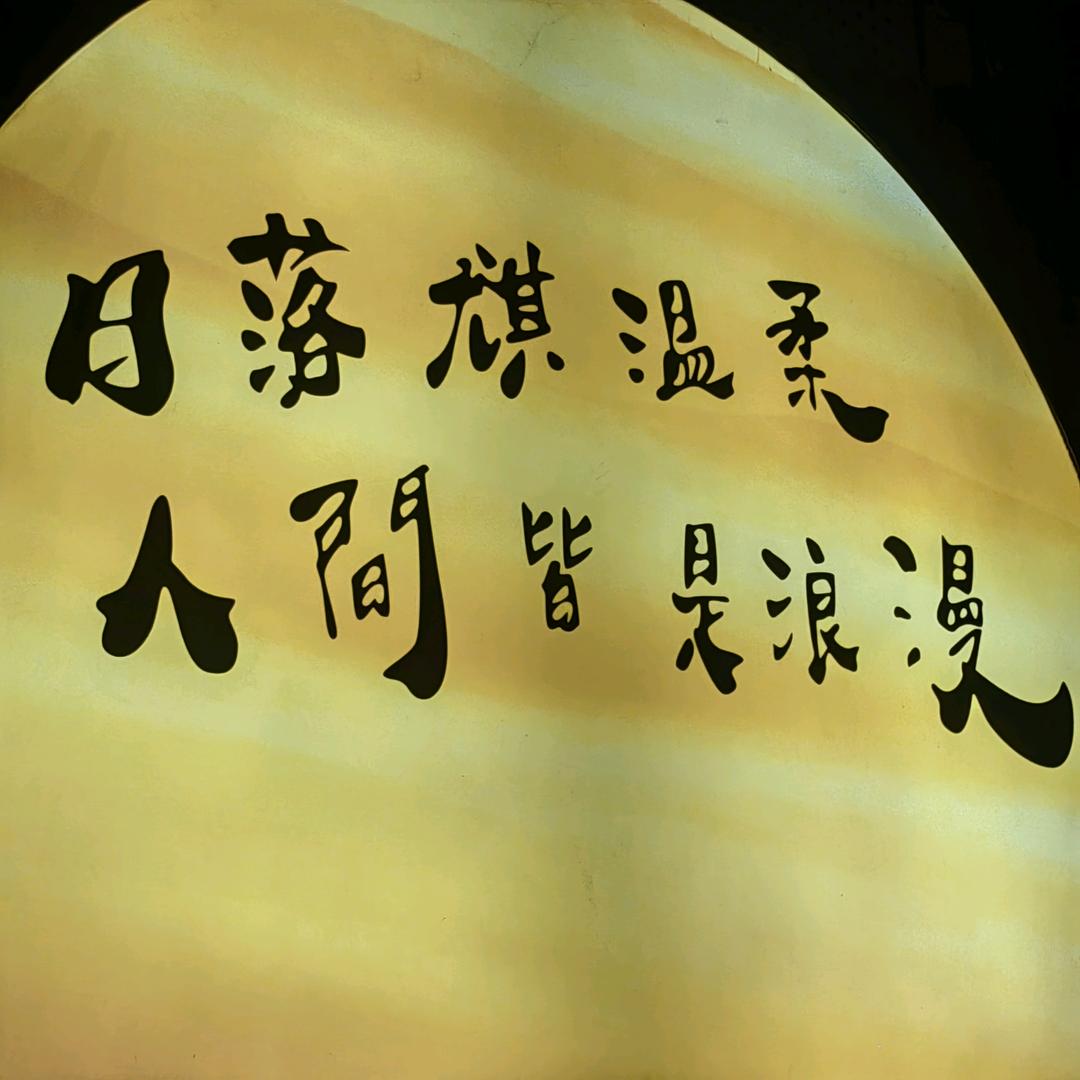 日落尤其温柔
人間皆是浪漫